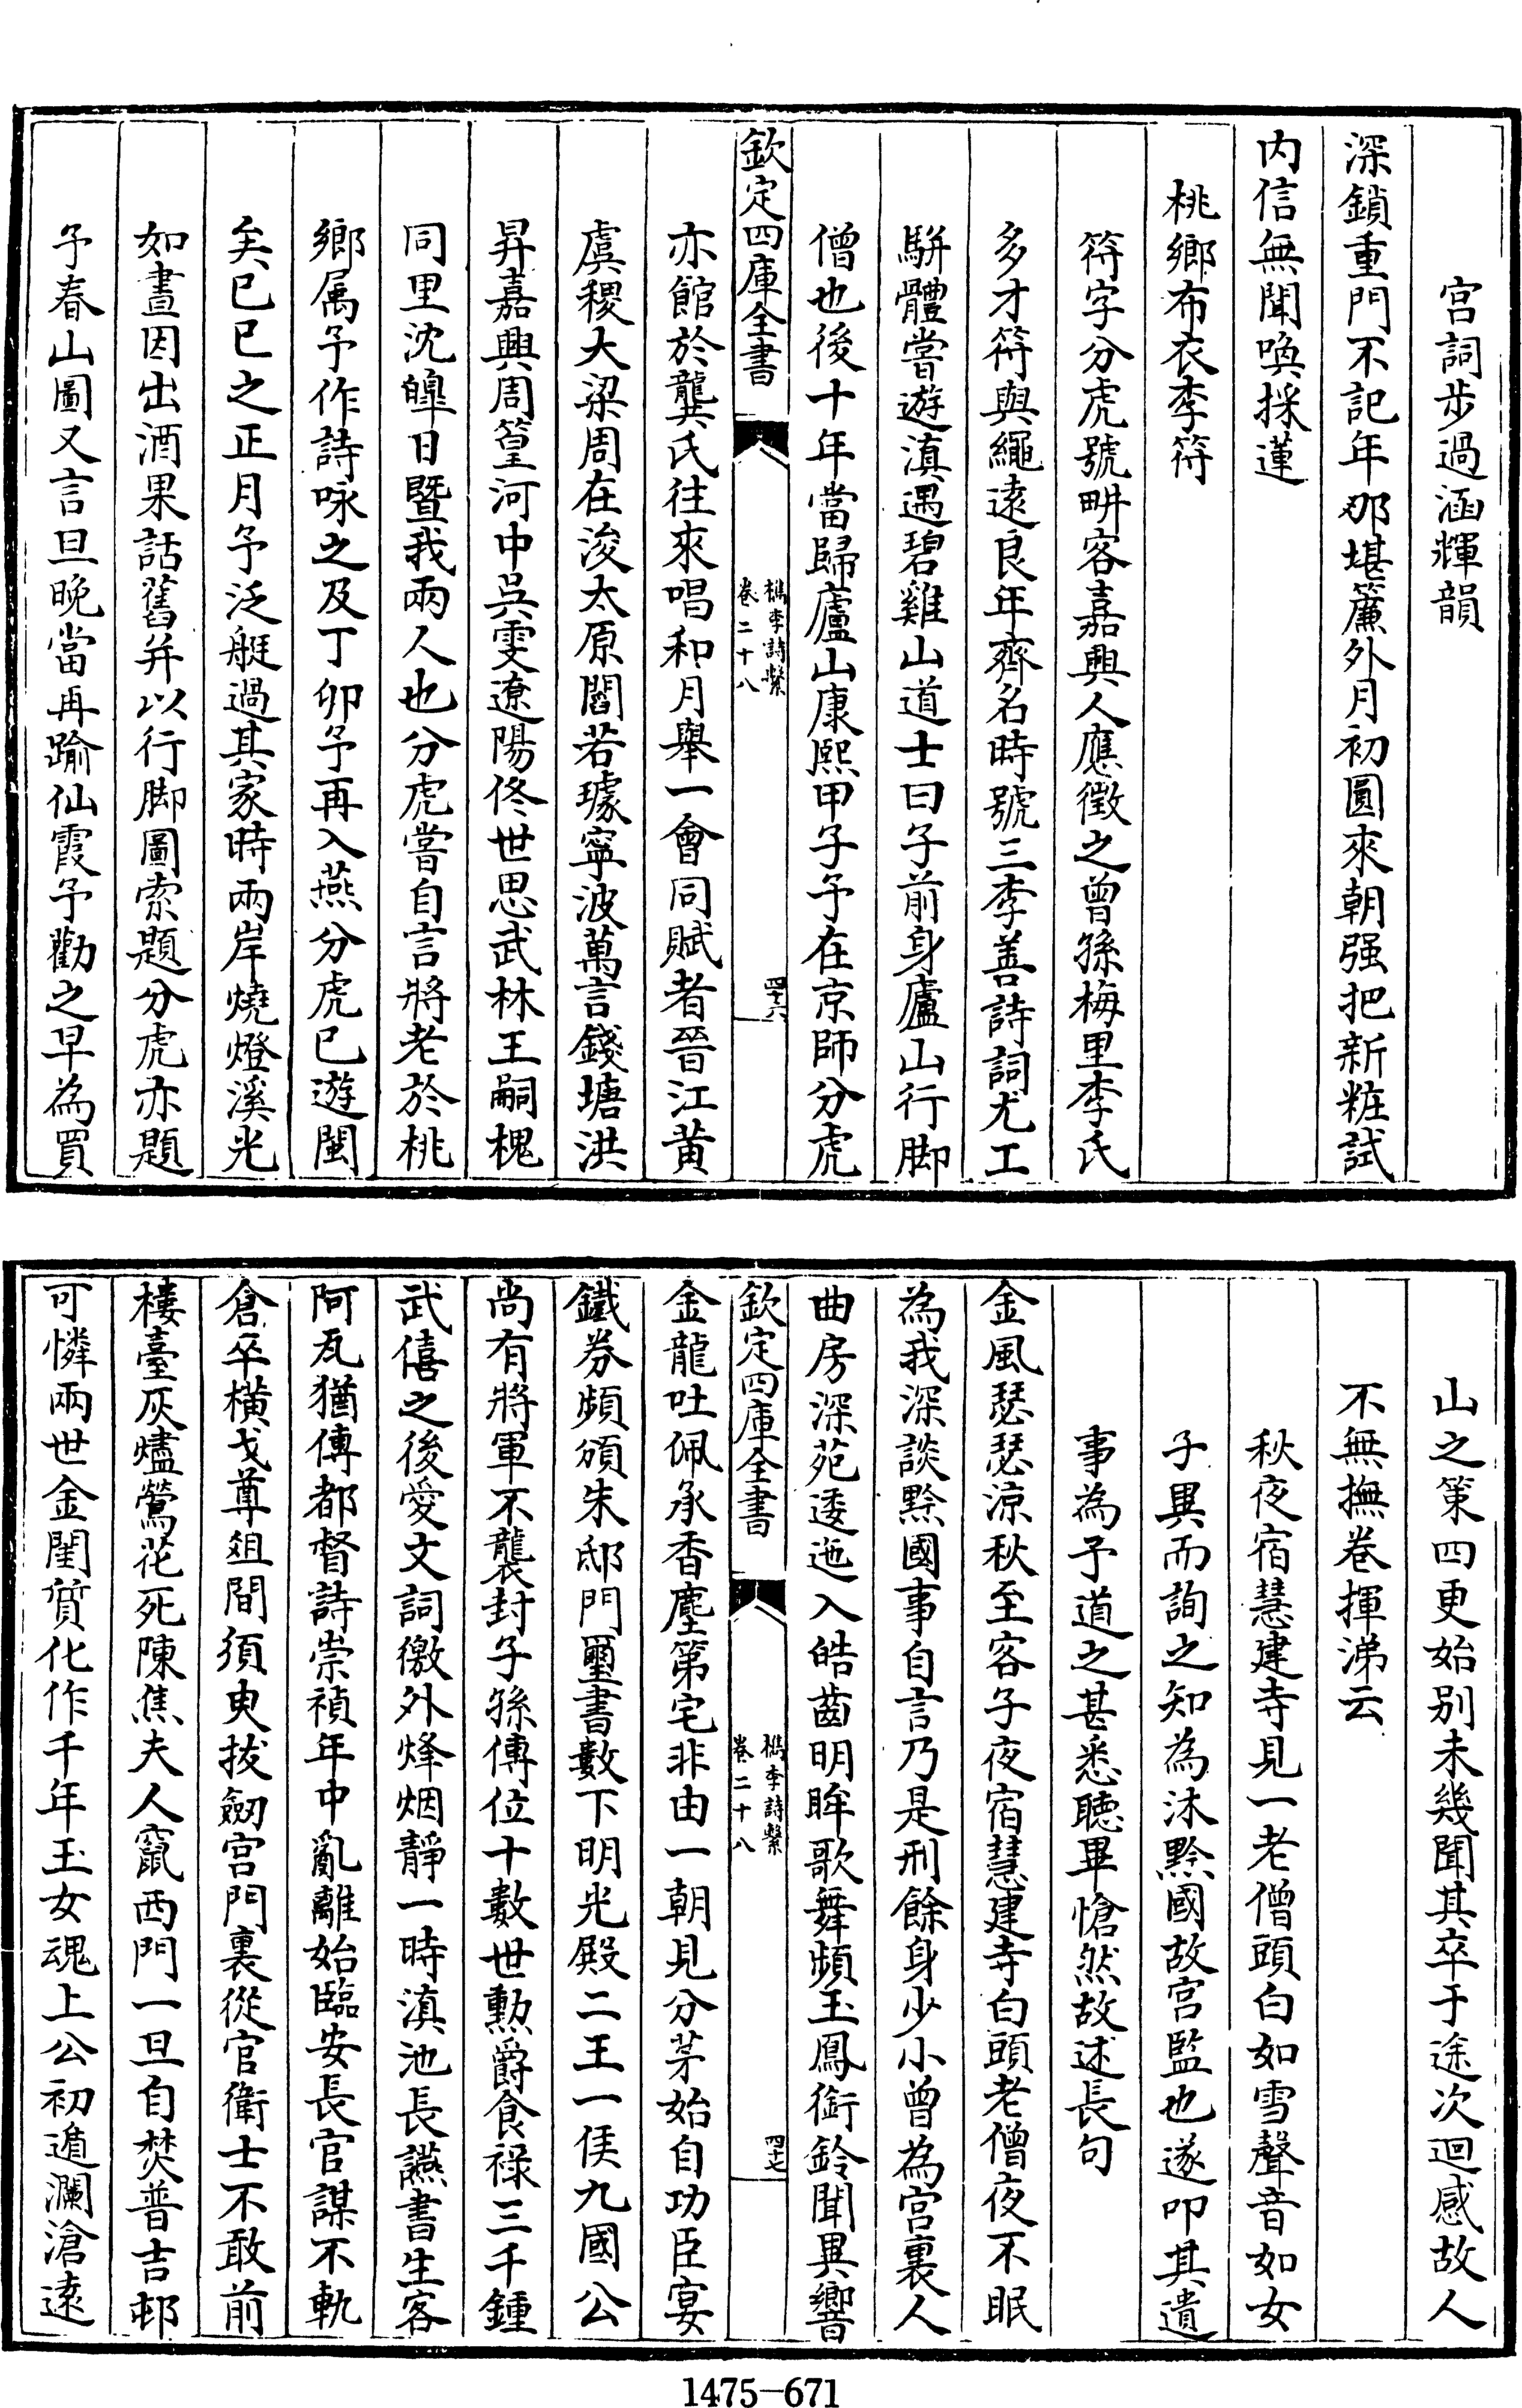 宫詞步過涵輝韻
深鎖重門不記年那堪簾外月初圓來朝强把新粧試
内信無聞喚採蓮
桃鄉布衣李符
符字分虎號畊客嘉興人應徵之曾孫梅里李氏
多才符與繩遠良年齊名時號三李善詩詞尤工
駢體嘗遊滇遇碧雞山道士曰子前身廬山行脚
僧也後十年當歸廬山康熙甲子予在京師分虎
欽定四庫全書
檇李詩繫
卷二十八
四十六
亦館於龔氏往來唱和月舉一會同賦者晉江黄
虞稷大梁周在浚太原閻若璩寧波萬言錢塘洪
昇嘉興周篔河中吳雯遼陽佟世思武林王嗣槐
同里沈皥日暨我兩人也分虎嘗自言將老於桃
鄉属予作詩咏之及丁卯予再入燕分虎已遊閩
矣已巳之正月予泛艇過其家時兩岸燒燈溪光
如晝因出酒果話舊并以行脚圖索題分虎亦題
予春山圖又言旦晩當再踰仙霞予勸之早為買
山之策四更始别未幾聞其卒于途次迴感故人
不無撫卷揮涕云
秋夜宿慧建寺見一老僧頭白如雪聲音如女
子異而詢之知為沐黔國故宫監也遂叩其遺
事為予道之甚悉聴畢愴然故述長句
金風瑟瑟涼秋至客子夜宿慧建寺白頭老僧夜不眠
為我深談黔國事自言乃是刑餘身少小曾為宫裏人
曲房深苑逶迤入皓齒明眸歌舞頻玉鳳銜鈴聞異響
欽定四庫全書
檇李詩繫
卷二十八
四十七
金龍吐佩承香塵第宅非由一朝見分茅始自功臣宴
鐵券頻頒朱邸門璽書數下明光殿二王一侯九國公
尚有將軍不襲封子孫傳位十數世勲爵食祿三千鍾
武僖之後愛文詞徼外烽烟靜一時滇池長讌書生客
阿瓦猶傳都督詩崇禎年中亂離始臨安長官謀不軌
倉卒横戈尊俎間須臾拔劒宫門裏從官衛士不敢前
樓臺灰燼鶯花死陳焦夫人竄西門一旦自焚普吉邨
可憐兩世金閨質化作千年玉女魂上公初遁瀾滄遠
1475-671